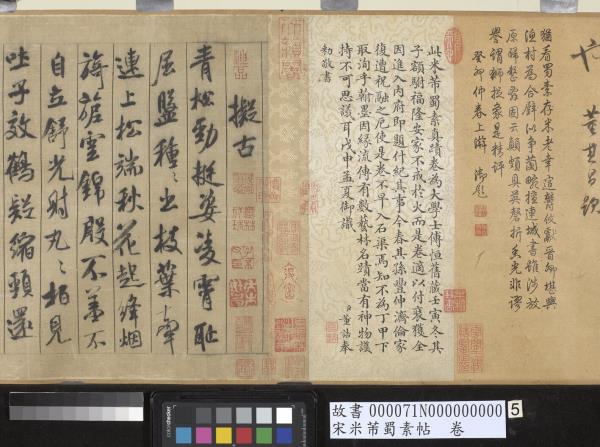 也
董其昌題
猶看蜀素存米老獻晉卿堪與
漁村為合璧以爭蘭畹擅連城書雖涉放
原歸整因云顛頗具光非謬
譽謂獅捉象是精評
癸卯仲春上澣 御題
此米芾蜀素真蹟卷為大學士傅恒舊藏壬寅冬其
子額駙福隆安家不戒於火而是卷適以付裝獲全
因進入內府即題什紀其事今春其孫豐伸濟倫家
復遭祝融之厄使是卷不早入石渠焉知不為丁甲下
取洵乎翰墨因緣流傳有數藝林名蹟當有神物護
持不可思議耳戊申孟夏御識
臣董誥奉
勅敬書
擬古
青松勁挺姿凌霄恥
屈盤種〻出枝葉牽
連上松端秋花起絳烟
旖旎雲錦殷不羞不
自立舒光射丸〻柏見
吐子效鶴疑縮頸還
故書 000071N000000000 5
宋米芾蜀素帖 卷